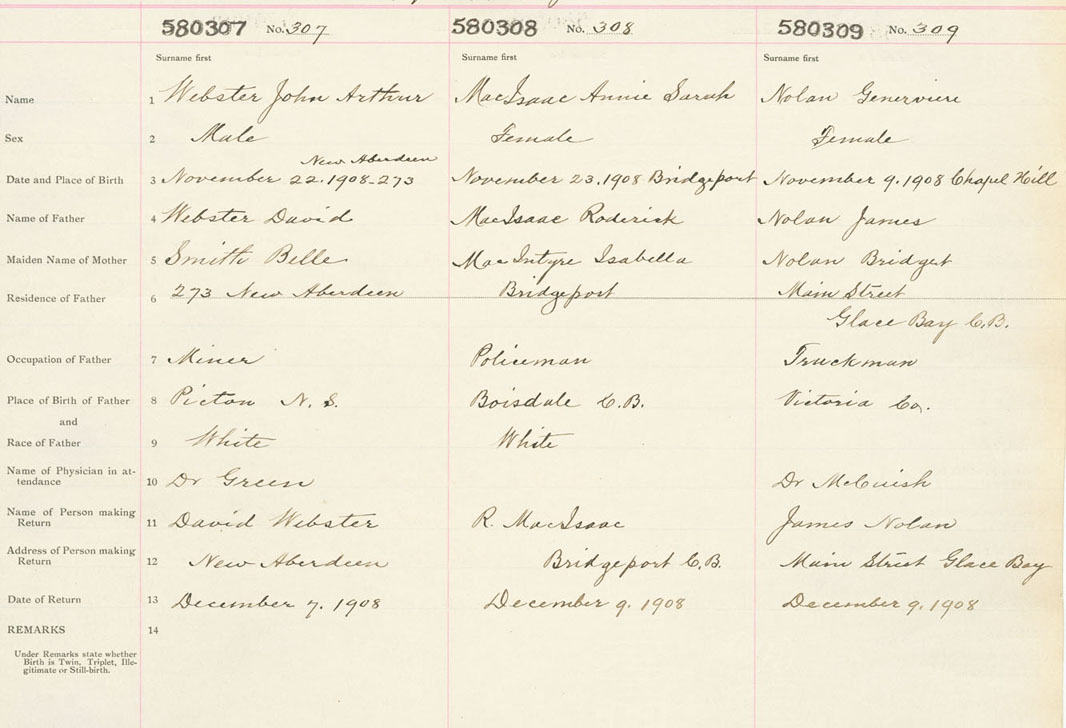 580307 No. 307 580308 No. 308 580309 No. 309
Surname first Surname first Surname first
Name 1 Webster John Arthur MacIsaac Annie Sarah Nolan Generviere
Sex 2 Male Female Female
New Aberdeen
Date and Place of Birth 3 November 22. 1908-273 November 23. 1908 Bridgeport November 9. 1908 Chapel Hill
Name of Father 4 Webster David MacIsaac Roderick Nolan James
Maiden Name of Mother 5 Smith Belle MacIntyre Isabella Nolan Bridget
Residence of Father 6 273 New Aberdeen Bridgeport Main Street
Glace Bay C.B.
Occupation of Father 7 Miner Policeman Truckman
Place of Birth of Father 8 Picton N. S. Boisdale C.B. Victoria Co.
and
Race of Father 9 White White
Name of Physician in at-
tendance 10 Dr Green Dr McCuish
Name of Person making
Return 11 David Webster R. MacIsaac James Nolan
Address of Person making
Return 12 New Aberdeen Bridgeport C.B. Main Street Glace Bay
Date of Return 13 December 7. 1908 December 9. 1908 December 9. 1908
REMARKS 14
Under Remarks state whether
Birth is Twin, Triplet, Ille-
gitimate or Still-birth.